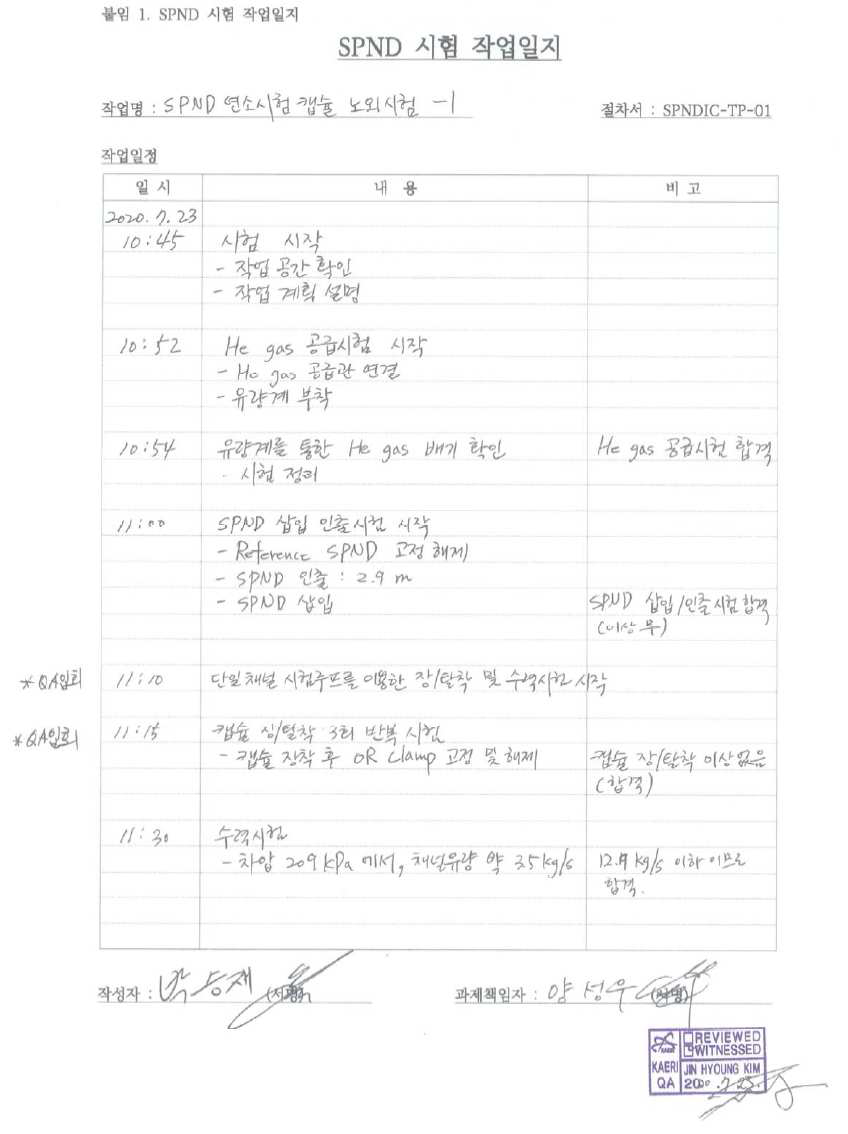 붙임 1. SPND 시험 작업일지
SPND 시험 작업일지
작업명 : SPND 연소시험 캡슐 노외시험 -1
절차서 : SPNDIC-TP-01
작업일정
일 시 내 용 비 고
2020. 7. 23
10:45 시험 시작
- 작업 공간 확인
- 작업 계획 설명
10:52 He gas 공급시험 시작
- He gas 공급관 연결
- 유량계 부착
10:54 유량계를 통한 He gas 배기 확인 He gas 공급시험 합격
- 시험 정리
11:00 SPND 삽입 인출시험 시작
- Reference SPND 고정 해제
- SPND 인출 : 2.9 m
- SPND 삽입 SPND 삽입/인출시험 합격
(이상 무)
*QA입회 11:10 단일채널 시험루프를 이용한 장/탈착 및 수력시험 시작
*QA입회 11:15 캡슐 장/탈착 3회 반복 시험
- 캡슐 장착 후 OR Clamp 고정 및 해제 캡슐 장/탈착 이상없음
(합격)
11:30 수력시험
- 차압 209 kPa 에서, 채널유량 약 3.5 kg/s kg/s 이하 이므로
합격.
작성자 : 박승재 (서명)
과제책임자 : 양성우 (서명)
REVIEWED
WITNESSED
KAERI JIN HYOUNG KIM
QA